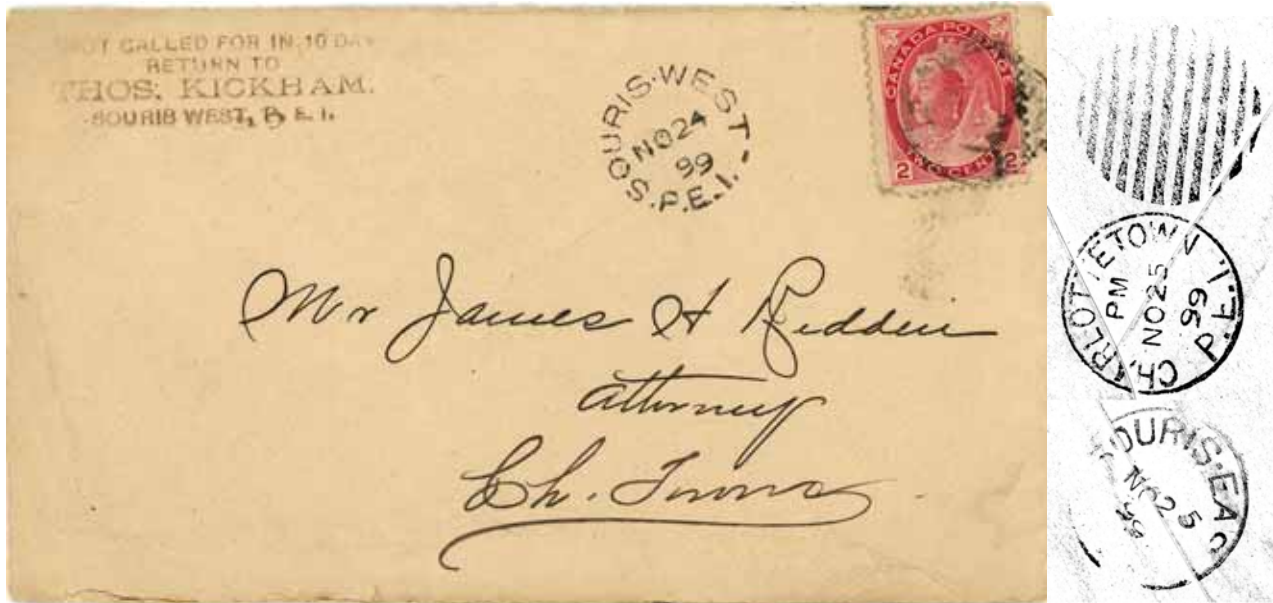 NOT CALLED FOR IN 10 DAYS
RETURN TO
THOS. KICKHAM.
SOURIS WEST, P. E. I.
SOURIS·WEST
NO 24
99
P.E.I.
CANADA POSTAGE
2 TWO CENTS 2
Mr James H Reddin
Attorney
Ch. Town
CHARLOTTETOWN
PM
NO 25
99
P.E.I.
SOURIS·EAS
NO 25
99